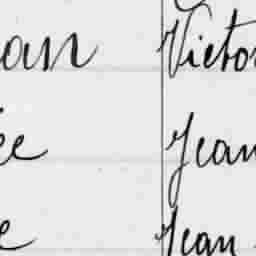 an Victor
ée Jean
e Jean